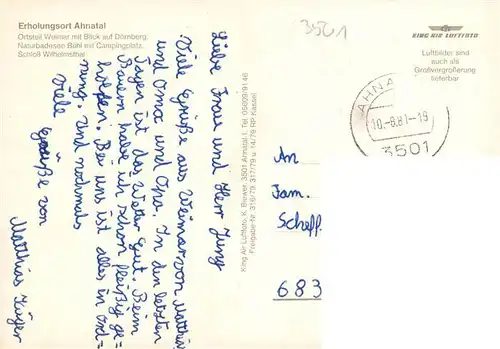 Erholungsort Ahnatal
Ortsteil Weimar mit Blick auf Dörnberg,
Naturbadesee Bühl mit Campingplatz,
Schloß Wilhelmsthal
3501
KING AIR LUFTFOTO
Luftbilder sind
auch als
Großvergrößerung
lieferbar
AHNA
10.-8.81-19
3501
Liebe Frau und Herr Jung
Viele Grüße aus Weimar von Matthias
und Oma und Opa. In den letzten
Tagen ist das Wetter gut. Beim
Bauern habe ich schon fleißig ge=
holfen. Bei uns ist alles in Ord=
nung. Und nochmals
viele Grüße von
Matthias Jäger
King Air Luftfoto, K. Brewer, 3501 Ahnatal-1, Tel. 05609/91 46
Freigabe-Nr. 316/79, 317/79 u. 14/79 RP Kassel
An
Fam.
Scheff
683